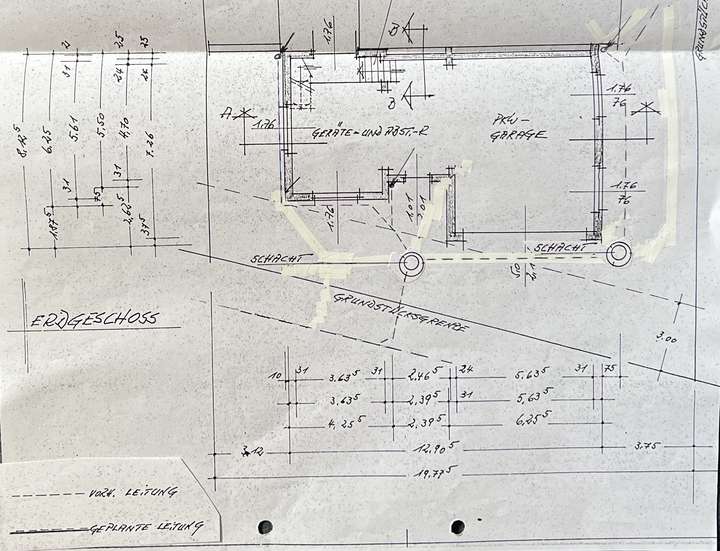 1.76
B
GRUNDSTÜCK
A
1.76
GERÄTE-UND ABST.-R
PKW-
GARAGE
B
1.76
76
1.76
76
1.76
1.01
1.01
SCHACHT
SCHACHT
GRUNDSTÜCKSGRENZE
3.00
2⁵ 25
31 24 24
8.12⁵ 6.25 5.61 5.50 4.70 7.26
31 31
75
1.87⁵ 2.62⁵ 37⁵
ERDGESCHOSS
10 31 3.63⁵ 31 2.46⁵ 24 5.63⁵ 31 75
3.63⁵ 2.39⁵ 31 5.63⁵
4.25⁵ 2.39⁵ 6.25⁵
3.12 12.90⁵ 3.75
19.77⁵
VORH. LEITUNG
GEPLANTE LEITUNG